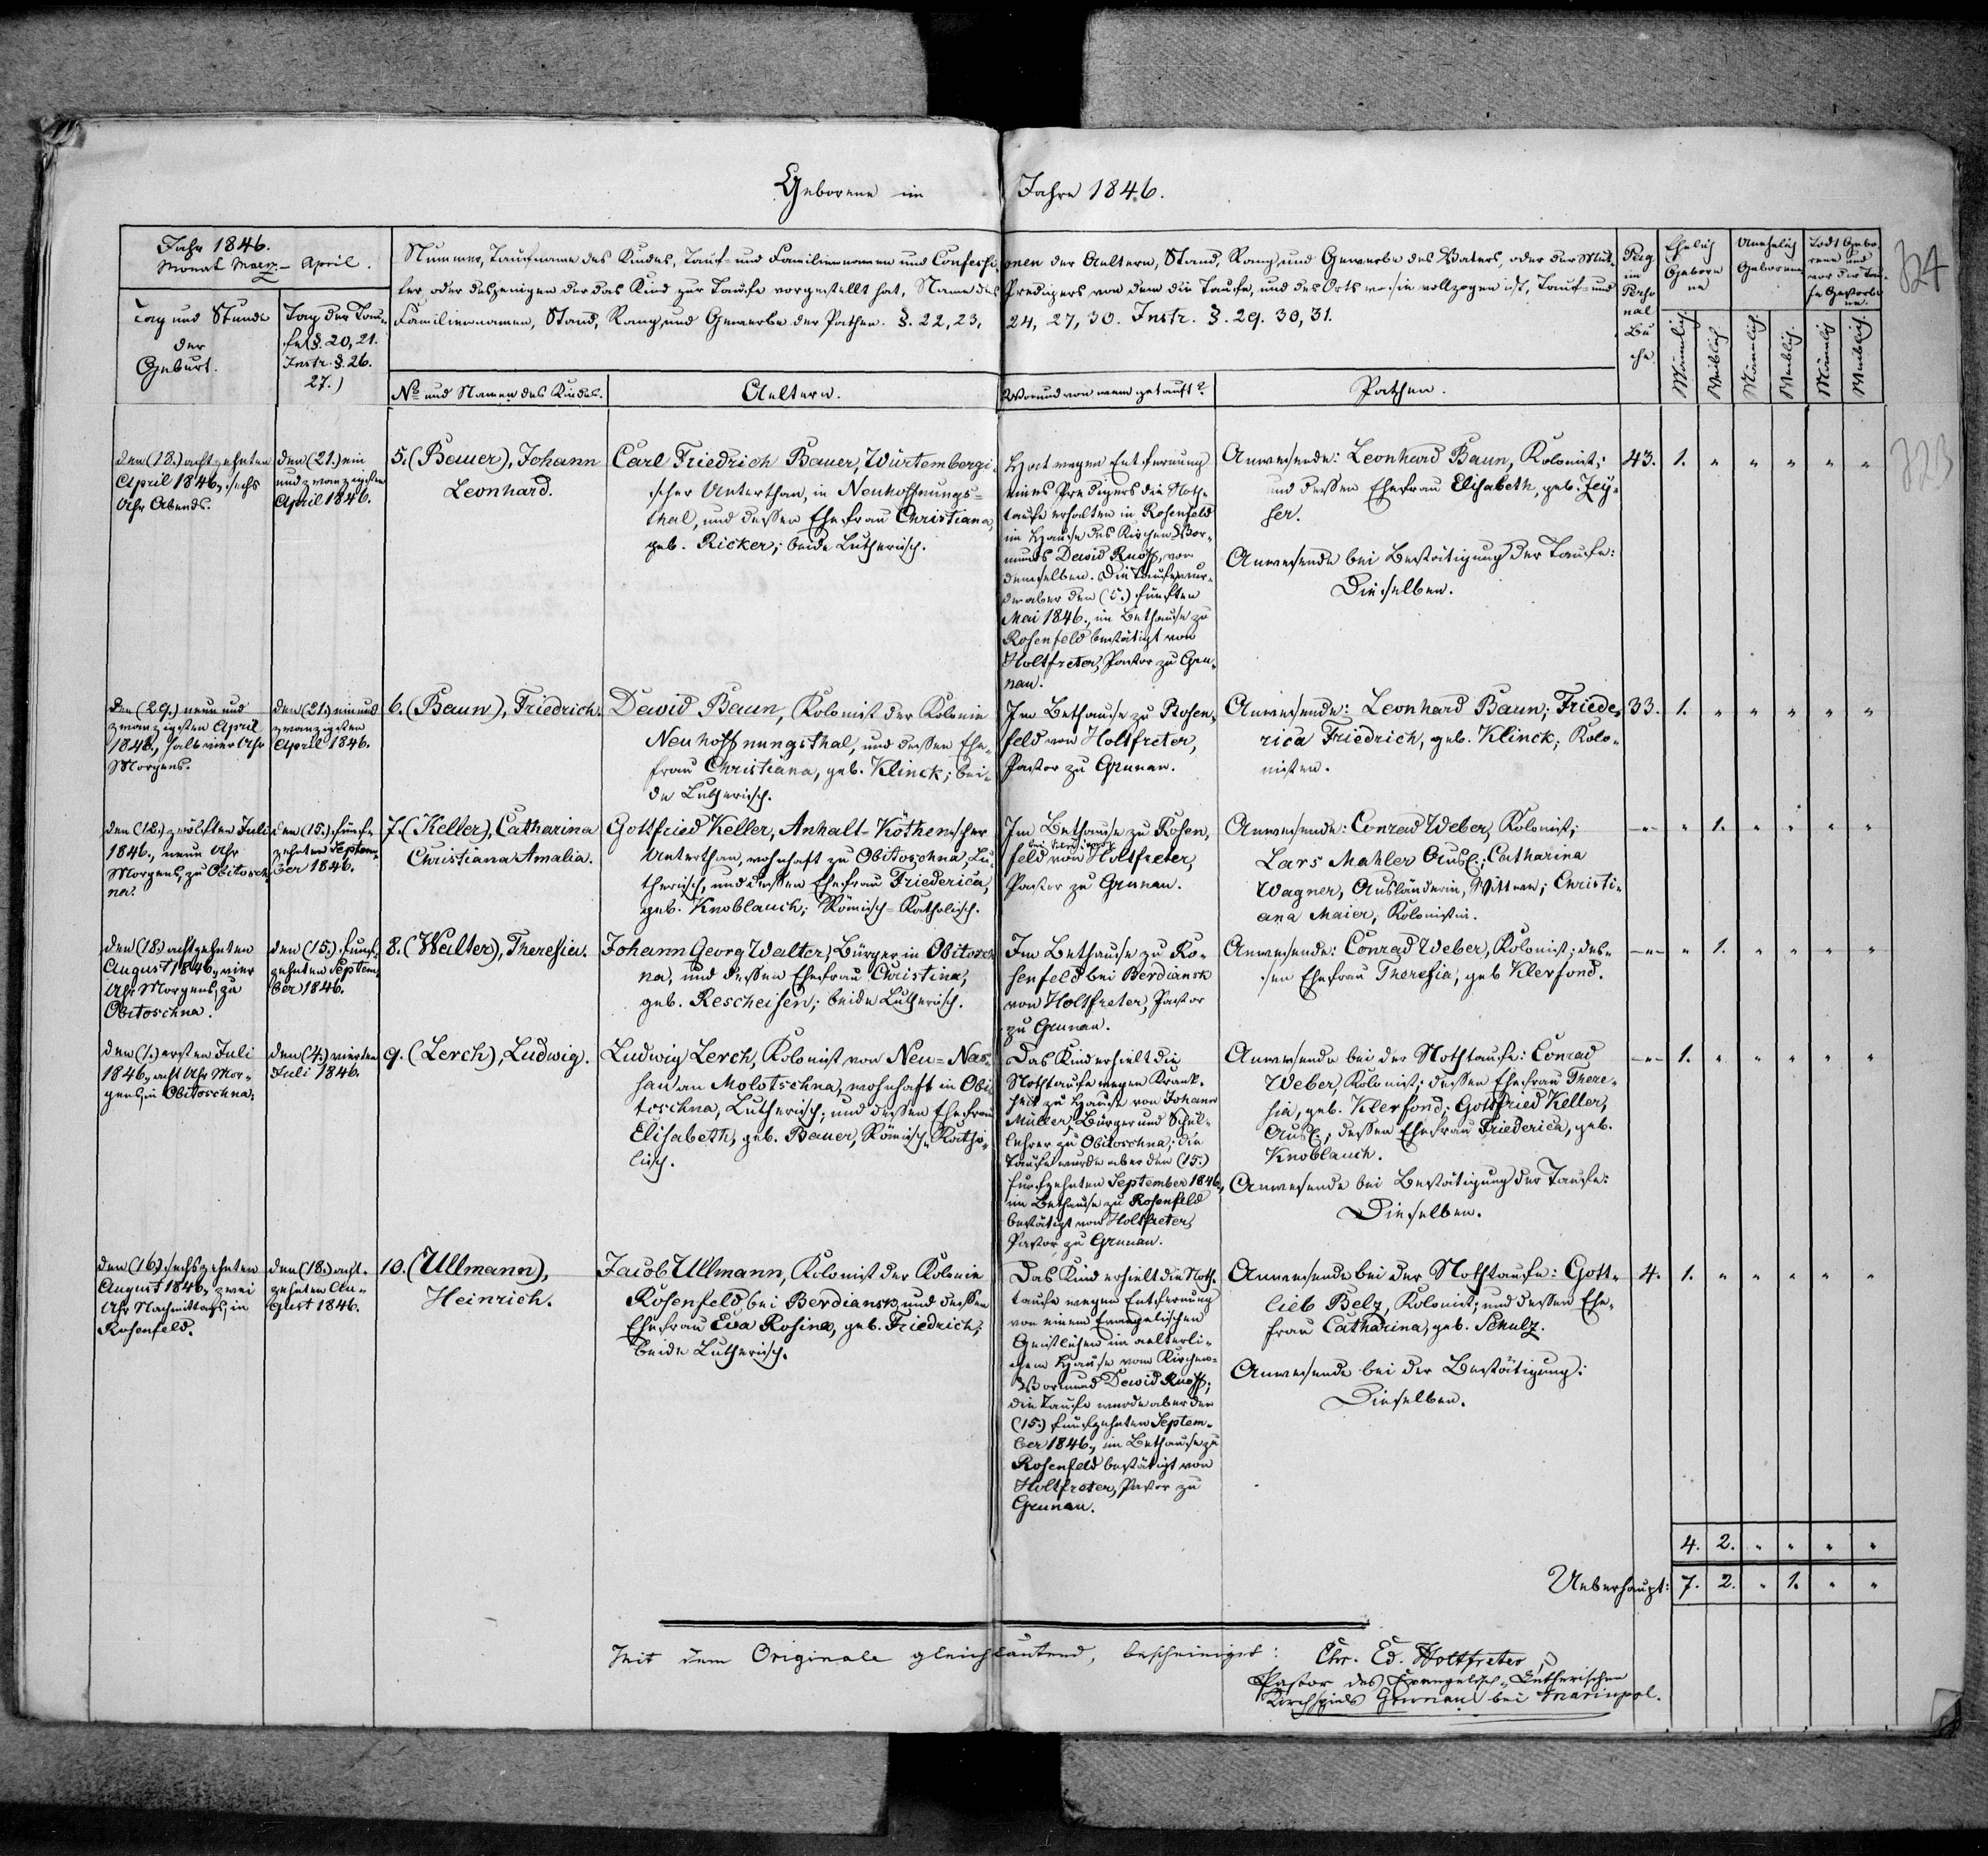 Geborene im Jahre 1846.
Jahr 1846.
Monat Maerz – April.
Tag und Stunde
der
Geburt.
Tag der Tau-
fe (§. 20, 21.
Instr. §. 26.
27.)
Nummer, Taufname des Kindes, Tauf- und Familiennamen und Confessionen der Aeltern, Stand, Rang und Gewerbe des Vaters, oder der Mut-
ter, oder desjenigen der das Kind zur Taufe vorgestellt hat, Name des Predigers von dem die Taufe, und des Orts wo sie vollzogen ist, Tauf- und
Familiennamen, Stand, Rang und Gewerbe der Pathen. §. 22, 23, 24, 27, 30. Instr. §. 29. 30, 31.
No und Namen des Kindes.
Aeltern.
Wo und von wem getauft?
Pathen.
Pag
im
Perso
nal
Bu
che.
Ehelich
Gebore
ne
Unehelich
Geborene
Todt Gebo-
rene und
vor der Tau-
fe Gestorbe
ne.
Männlich.
Weiblich
Männlich.
Weiblich.
Männlich
Weiblich.
324
323
den (18.) achtzehnten
April 1846., sechs
Uhr Abends.
den (21.) ein
und zwanzigsten
April 1846.
5. (Bauer), Johann
Leonhard.
Carl Friedrich Bauer, Würtembergi-
scher Unterthan, in Neuhoffnungs-
thal, und dessen Ehefrau Christiana,
geb. Ricker; beide Lutherisch.
Hat wegen Entfernung
eines Predigers die Noth-
taufe erhalten in Rosenfeld
im Hause des Kirchen Vor-
munds David Knoff, von
demselben. Die Taufe wur-
de aber den (5.) fünften
Mai 1846., im Bethause zu
Rosenfeld bestätigt von
Holtfreter, Pastor zu Gru-
nau.
Anwesende: Leonhard Baun, Kolonist;
und dessen Ehefrau Elisabeth, geb. Zey-
ser.
Anwesende bei Bestätigung der Taufe:
Dieselben.
43. 1. " " " " "
den (29.) neun und
zwanzigsten April
1846., halb vier Uhr
Morgens.
den (21.) ein und
zwanzigsten
April 1846.
6. (Baun), Friedrich.
David Baun, Kolonist der Kolonie
Neuhoffnungsthal, und dessen Ehe-
frau Christiana, geb. Klinck; bei-
de Lutherisch.
Im Bethause zu Rosen-
feld von Holtfreter,
Pastor zu Grunau.
Anwesende: Leonhard Baun; Friede-
rica Friedrich, geb. Klinck; Kolo-
nisten.
33. 1. " " " " "
den (12.) zwölften Juli
1846., neun Uhr
Morgens, zu Obitosch-
na.
den (15.) fünf-
zehnten Septem-
ber 1846.
7. (Keller), Catharina
Christiana Amalia.
Gottfried Keller, Anhalt-Köthenscher
Unterthan, wohnhaft zu Obitoschna, Lu-
therisch, und dessen Ehefrau Friederica,
geb. Knoblauch; Römisch-Katholisch.
Im Bethause zu Rosen-
bei Berdiansk
feld von Holtfreter,
Pastor zu Grunau.
Anwesende: Conrad Weber, Kolonist;
Lars Mahler Ausl.; Catharina
Wagner, Ausländerin, Wittwe; Christi-
ana Maier, Kolonistin.
–"– " 1. " " " "
den (18.) achtzehnten
August 1846., vier
Uhr Morgens, zu
Obitoschna.
den (15.) fünf-
zehnten Septem-
ber 1846.
8. (Walter), Theresia.
Johann Georg Walter, Bürger in Obitosch-
na, und dessen Ehefrau Christina,
geb. Rescheisen; beide Lutherisch.
Im Bethause zu Ro-
senfeld bei Berdiansk
von Holtfreter, Pastor
zu Grunau.
Anwesende: Conrad Weber, Kolonist; des-
sen Ehefrau Theresia, geb Klerfond.
–"– " 1. " " " "
den (1.) ersten Juli
1846., acht Uhr Mor-
gens, in Obitoschna.
den (4.) vierten
Juli 1846.
9. (Lerch), Ludwig.
Ludwig Lerch, Kolonist von Neu-Nas-
sau an Molotschna, wohnhaft in Obi-
toschna, Lutherisch; und dessen Ehefrau
Elisabeth, geb. Bauer, Römisch-Katho-
lisch.
Das Kind erhielt die
Nothtaufe wegen Krank-
heit zu Hause von Johann
Müller, Bürger und Schul-
lehrer zu Obitoschna; die
Taufe wurde aber den (15.)
fünfzehnten September 1846.,
im Bethause zu Rosenfeld
bestätigt von Holtfreter,
Pastor zu Grunau.
Anwesende bei der Nothtaufe: Conrad
Weber, Kolonist; dessen Ehefrau There-
sia, geb. Klerfond; Gottfried Keller,
Ausl.; dessen Ehefrau Friederica, geb.
Knoblauch.
Anwesende bei Bestätigung der Taufe:
Dieselben.
–"– 1. " " " " "
den (16.) sechszehnten
August 1846., zwei
Uhr Nachmittags, in
Rosenfeld.
den (18.) acht-
zehnten Au-
gust 1846.
10. (Ullmann),
Heinrich.
Jacob Ullmann, Kolonist der Kolonie
Rosenfeld, bei Berdiansk, und dessen
Ehefrau Eva Rosina, geb. Friedrich;
beide Lutherisch.
Das Kind erhielt die Noth-
taufe wegen Entfernung
von einem Evangelischen
Geistlichen im aelterli-
chem Hause vom Kirchen-
Vormund David Knoff;
die Taufe wurde aber den
(15.) fünfzehnten Septem-
ber 1846., im Bethause zu
Rosenfeld bestätigt von
Holtfreter, Pastor zu
Grunau.
Anwesende bei der Nothtaufe: Gott-
lieb Belz, Kolonist; und dessen Ehe-
frau Catharina, geb. Schulz.
Anwesende bei der Bestätigung:
Dieselben.
4. 1. " " " " "
4. 2. " " " "
Ueberhaupt: 7. 2. " 1. " "
Mit dem Originale gleichlautend, bescheiniget: Chr. Ed. Holtfreter,
Pastor des Evangelisch-Lutherischen
Kirchspiels Grunau bei Mariupol.